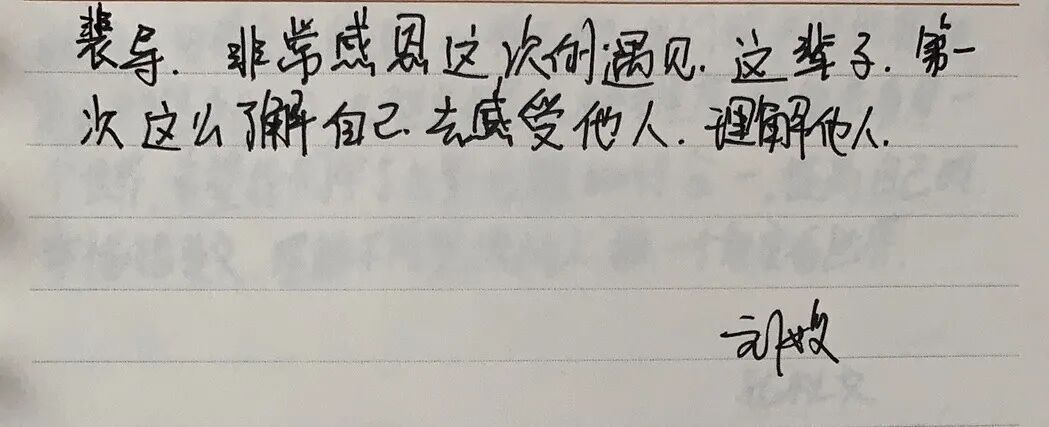 裴导. 非常感恩这次的遇见. 这辈子. 第一
次这么了解自己. 去感受他人. 理解他人.